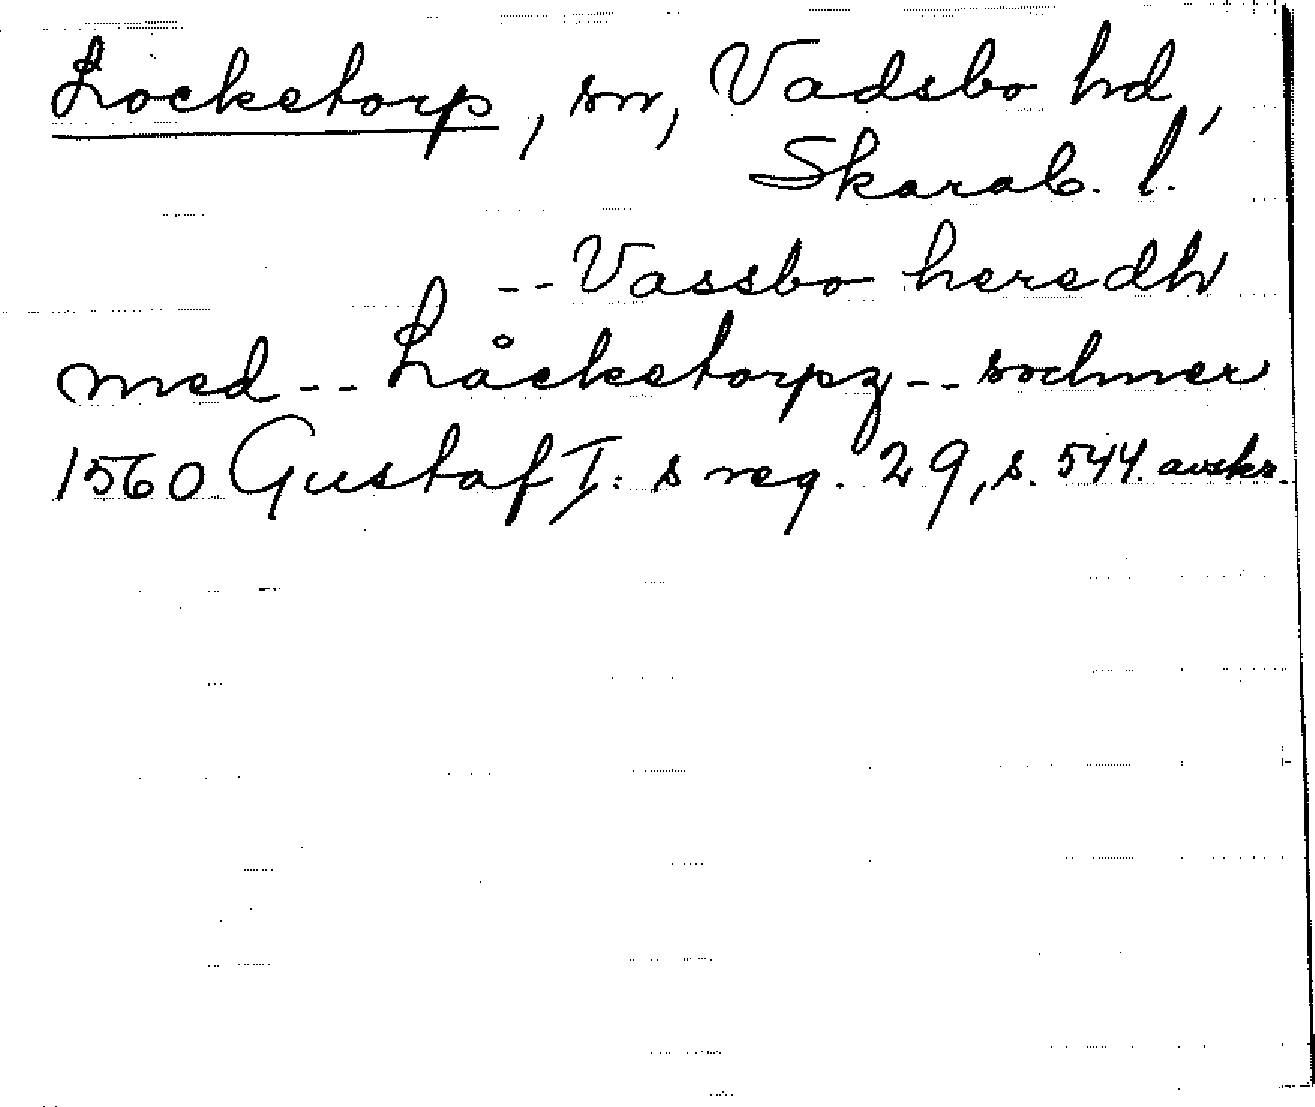 Locketorp, sn, Vadsbo hd,
Skarab. l.
-- Vassbo heredh
med -- Låcketorpz -- sochner
1560 Gustaf I: s reg. 29, s. 544. avskr.